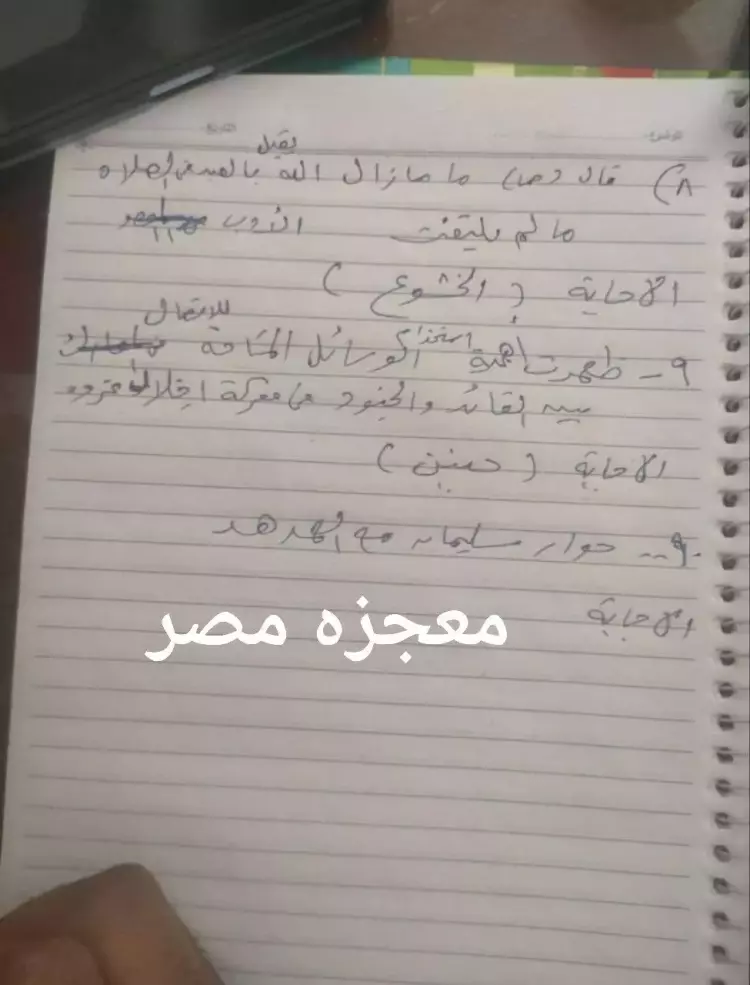 يقبل
٨) قال (ص) ما مازال الله بالعبد في الصلاه
ما لم يلتفت الأدب
الاجابة (الخشوع)
للاتصال
٩- ظهرت أهمية استخدام الوسائل المتاحة
بين القائد والجنود في معركة خلال غزوه
الاجابة (حنين)
٩٠- حوار سليمان مع الهدهد
الاجابة
معجزه مصر